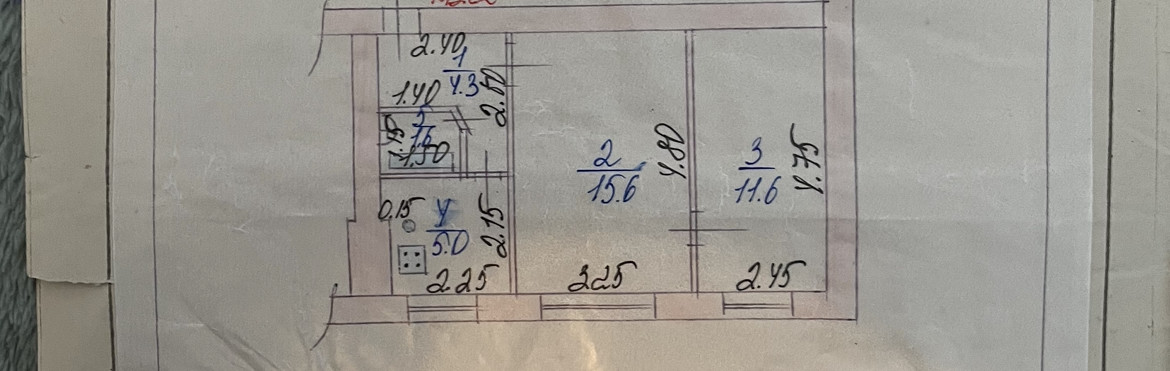 2.40
1
4.3
2.50
1.40
5
1.6
1.15
1.50
2
15.6
4.80
3
11.6
4.75
0.15
4
5.0
2.15
2.25
3.25
2.45